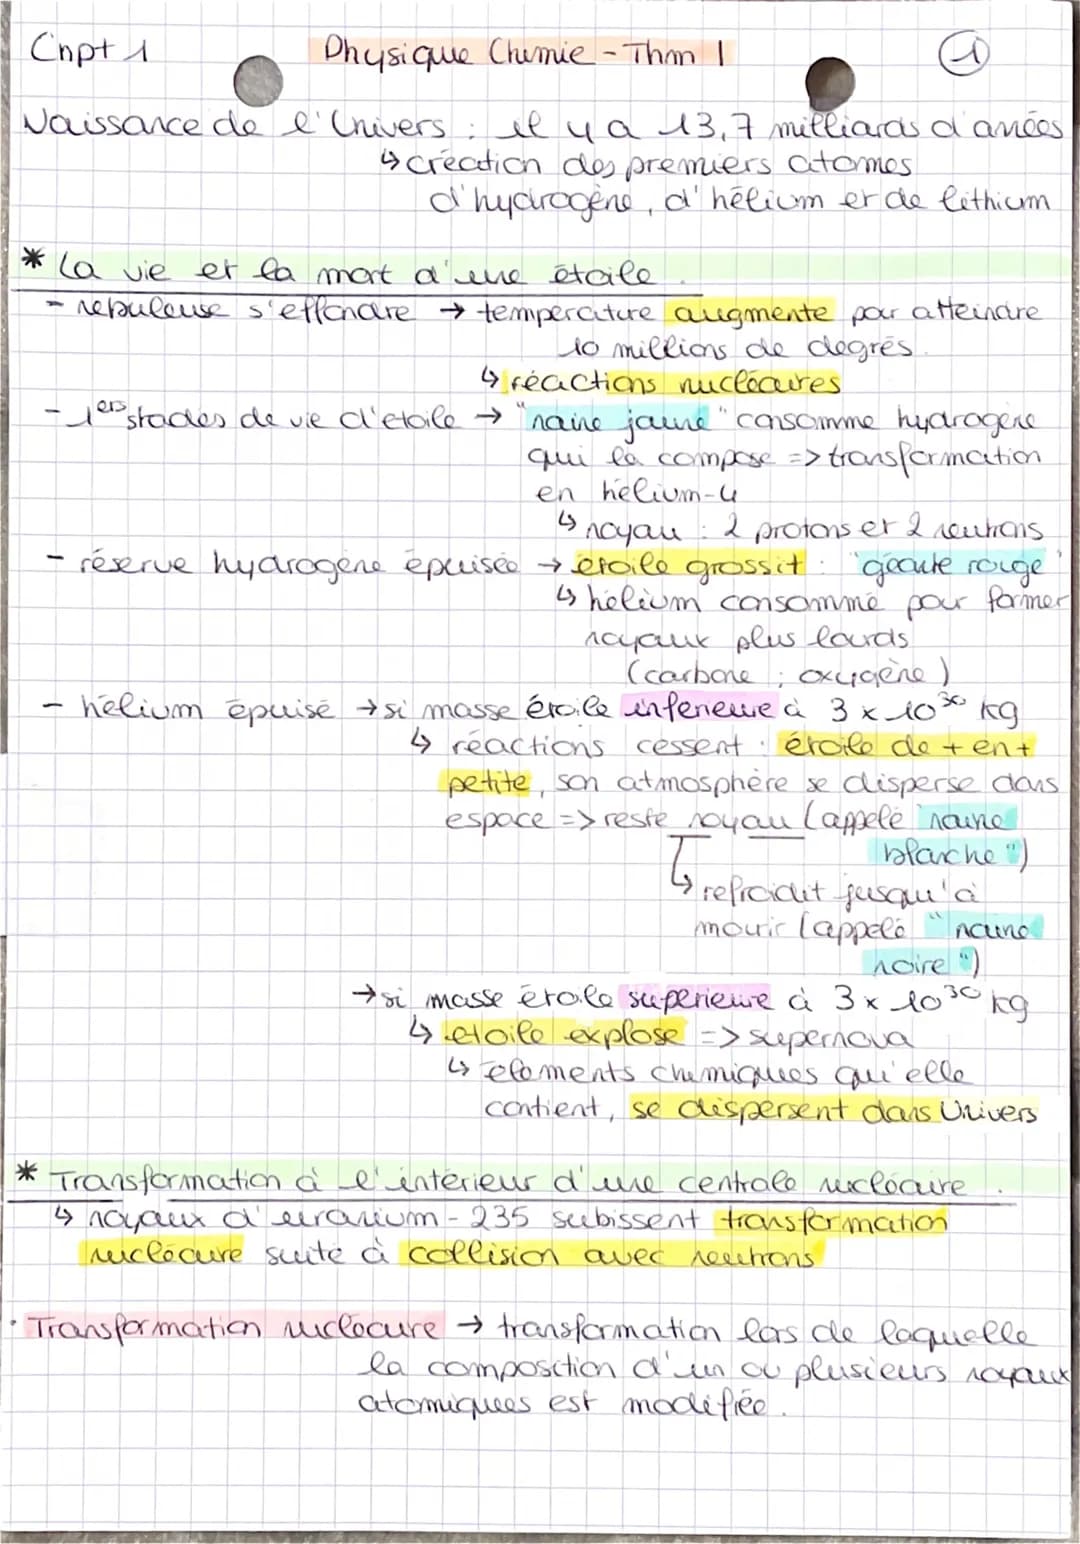 Chpt 1 Physique Chimie - Thm 1 1
Naissance de l'Univers : il y a 13,7 milliards d'années
↳ création des premiers atomes
d'hydrogène, d'hélium et de lithium
* La vie et la mort d'une étoile.
- nébuleuse s'effondre → température augmente pour atteindre
10 millions de degrés.
↳ réactions nucléaires
- 1ers stades de vie d'étoile → "naine jaune" consomme hydrogène
qui la compose => transformation
en hélium-4
↳ noyau : 2 protons et 2 neutrons
- réserve hydrogène épuisée → étoile grossit : "géante rouge"
↳ hélium consommé pour former
noyaux plus lourds
(carbone ; oxygène)
- hélium épuisé → si masse étoile inférieure à 3 x 10³⁰ kg
↳ réactions cessent : étoile de + en +
petite, son atmosphère se disperse dans
espace => reste noyau (appelé "naine
blanche")
↳ refroidit jusqu'à
mourir (appelé "naine
noire")
→ si masse étoile supérieure à 3 x 10³⁰ kg
↳ étoile explose => supernova
↳ éléments chimiques qu'elle
contient, se dispersent dans Univers
* Transformation à l'intérieur d'une centrale nucléaire.
↳ noyaux d'uranium-235 subissent transformation
nucléaire suite à collision avec neutrons
· Transformation nucléaire → transformation lors de laquelle
la composition d'un ou plusieurs noyaux
atomiques est modifiée.